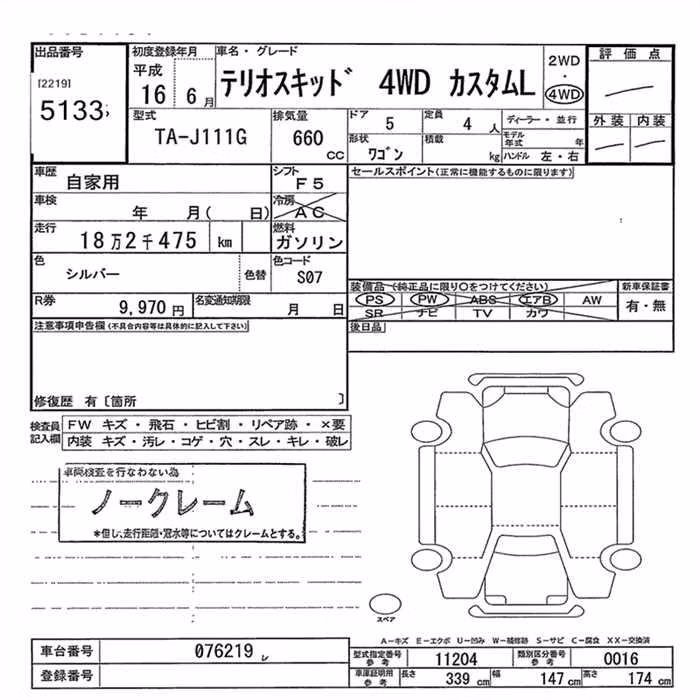 出品番号
[2219]
5133
初度登録年月
平成
16 6 月
車名・グレード
テリオスキッド 4WD カスタムL
2WD
・
4WD
評価点
型式
TA-J111G
排気量
660
cc
ドア 5
定員 4 人
ディーラー・並行
形状
ワゴン
積載
kg
モデル年式 年
ハンドル 左・右
外装 内装
車歴
自家用
シフト
F5
車検
年 月( 日)
冷房
AC
走行
18万2千475 km
燃料
ガソリン
色
シルバー
色替
色コード
S07
R券
9,970 円
名変通知期限
月 日
セールスポイント(正常に機能するものに限ります)
装備品 (純正品に限り○をつけてください)
PS PW ABS エアB AW
SR ナビ TV カワ
新車保証書
有・無
後日品
注意事項申告欄(不具合内容等は具体的に記入して下さい)
修復歴 有〔箇所 〕
検査員記入欄
FW キズ・飛石・ヒビ割・リペア跡・×要
内装 キズ・汚レ・コゲ・穴・スレ・キレ・破レ
車両検査を行なわない為
ノークレーム
*但し、走行距離・冠水等についてはクレームとする。
スペア
A-キズ E-エクボ U-凹み W-補修跡 S-サビ C-腐食 XX-交換済
車台番号
076219 レ
登録番号
型式指定番号 参考
11204
類別区分番号 参考
0016
車庫証明用 参考
長さ 339 cm
幅 147 cm
高さ 174 cm